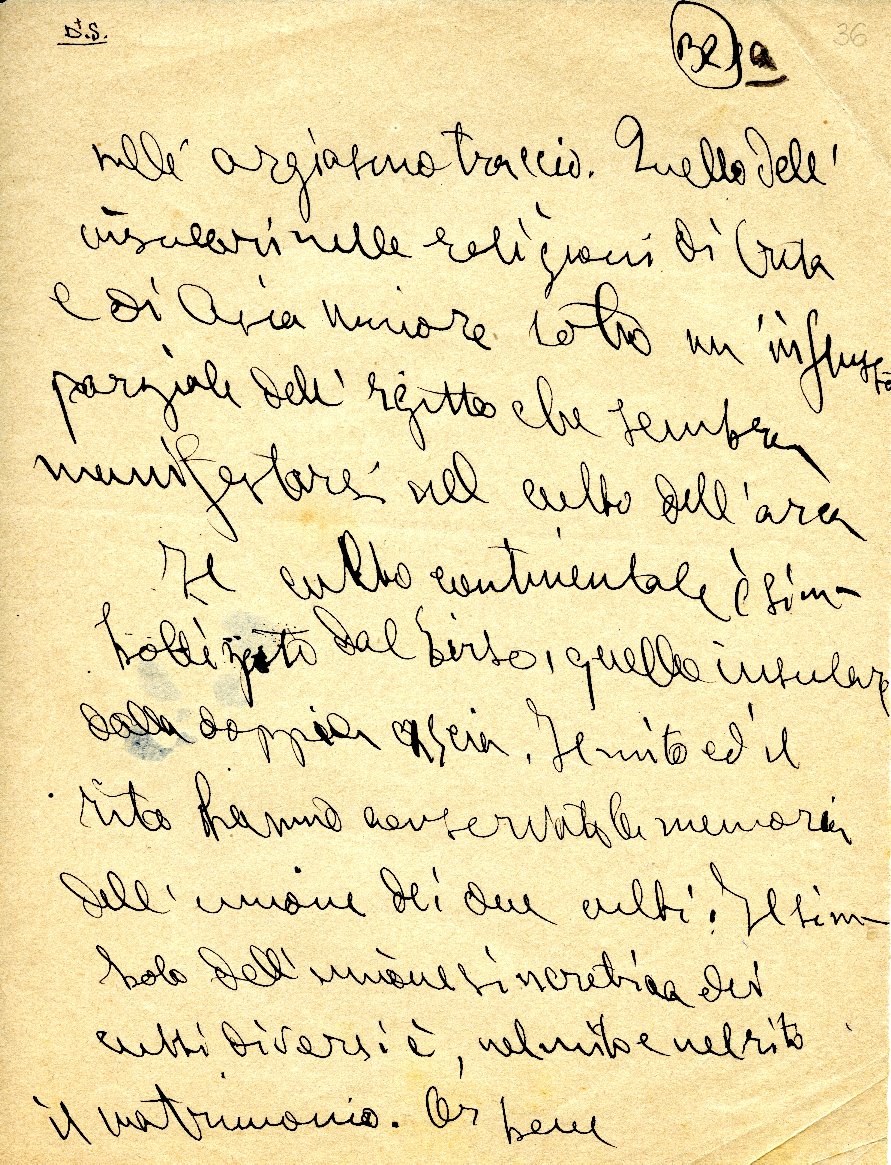 D.S.
36
nell' orgiasmo traccio. Quello dell'
nelle religioni di Creta
e di Asia minore sotto un' influsso
parziale dell' Egitto che sembra
manifestarsi nel culto dell'
Il culto continentale è sim-
bolizzato dal tirso, quello insulare
dalla doppia ascia. Il mito ed il
rito hanno conservato la memoria
dell' unione dei due culti. Il sim-
bolo dell' unione sincretica dei
culti diversi è, nel mito e nel rito
il matrimonio. Or bene